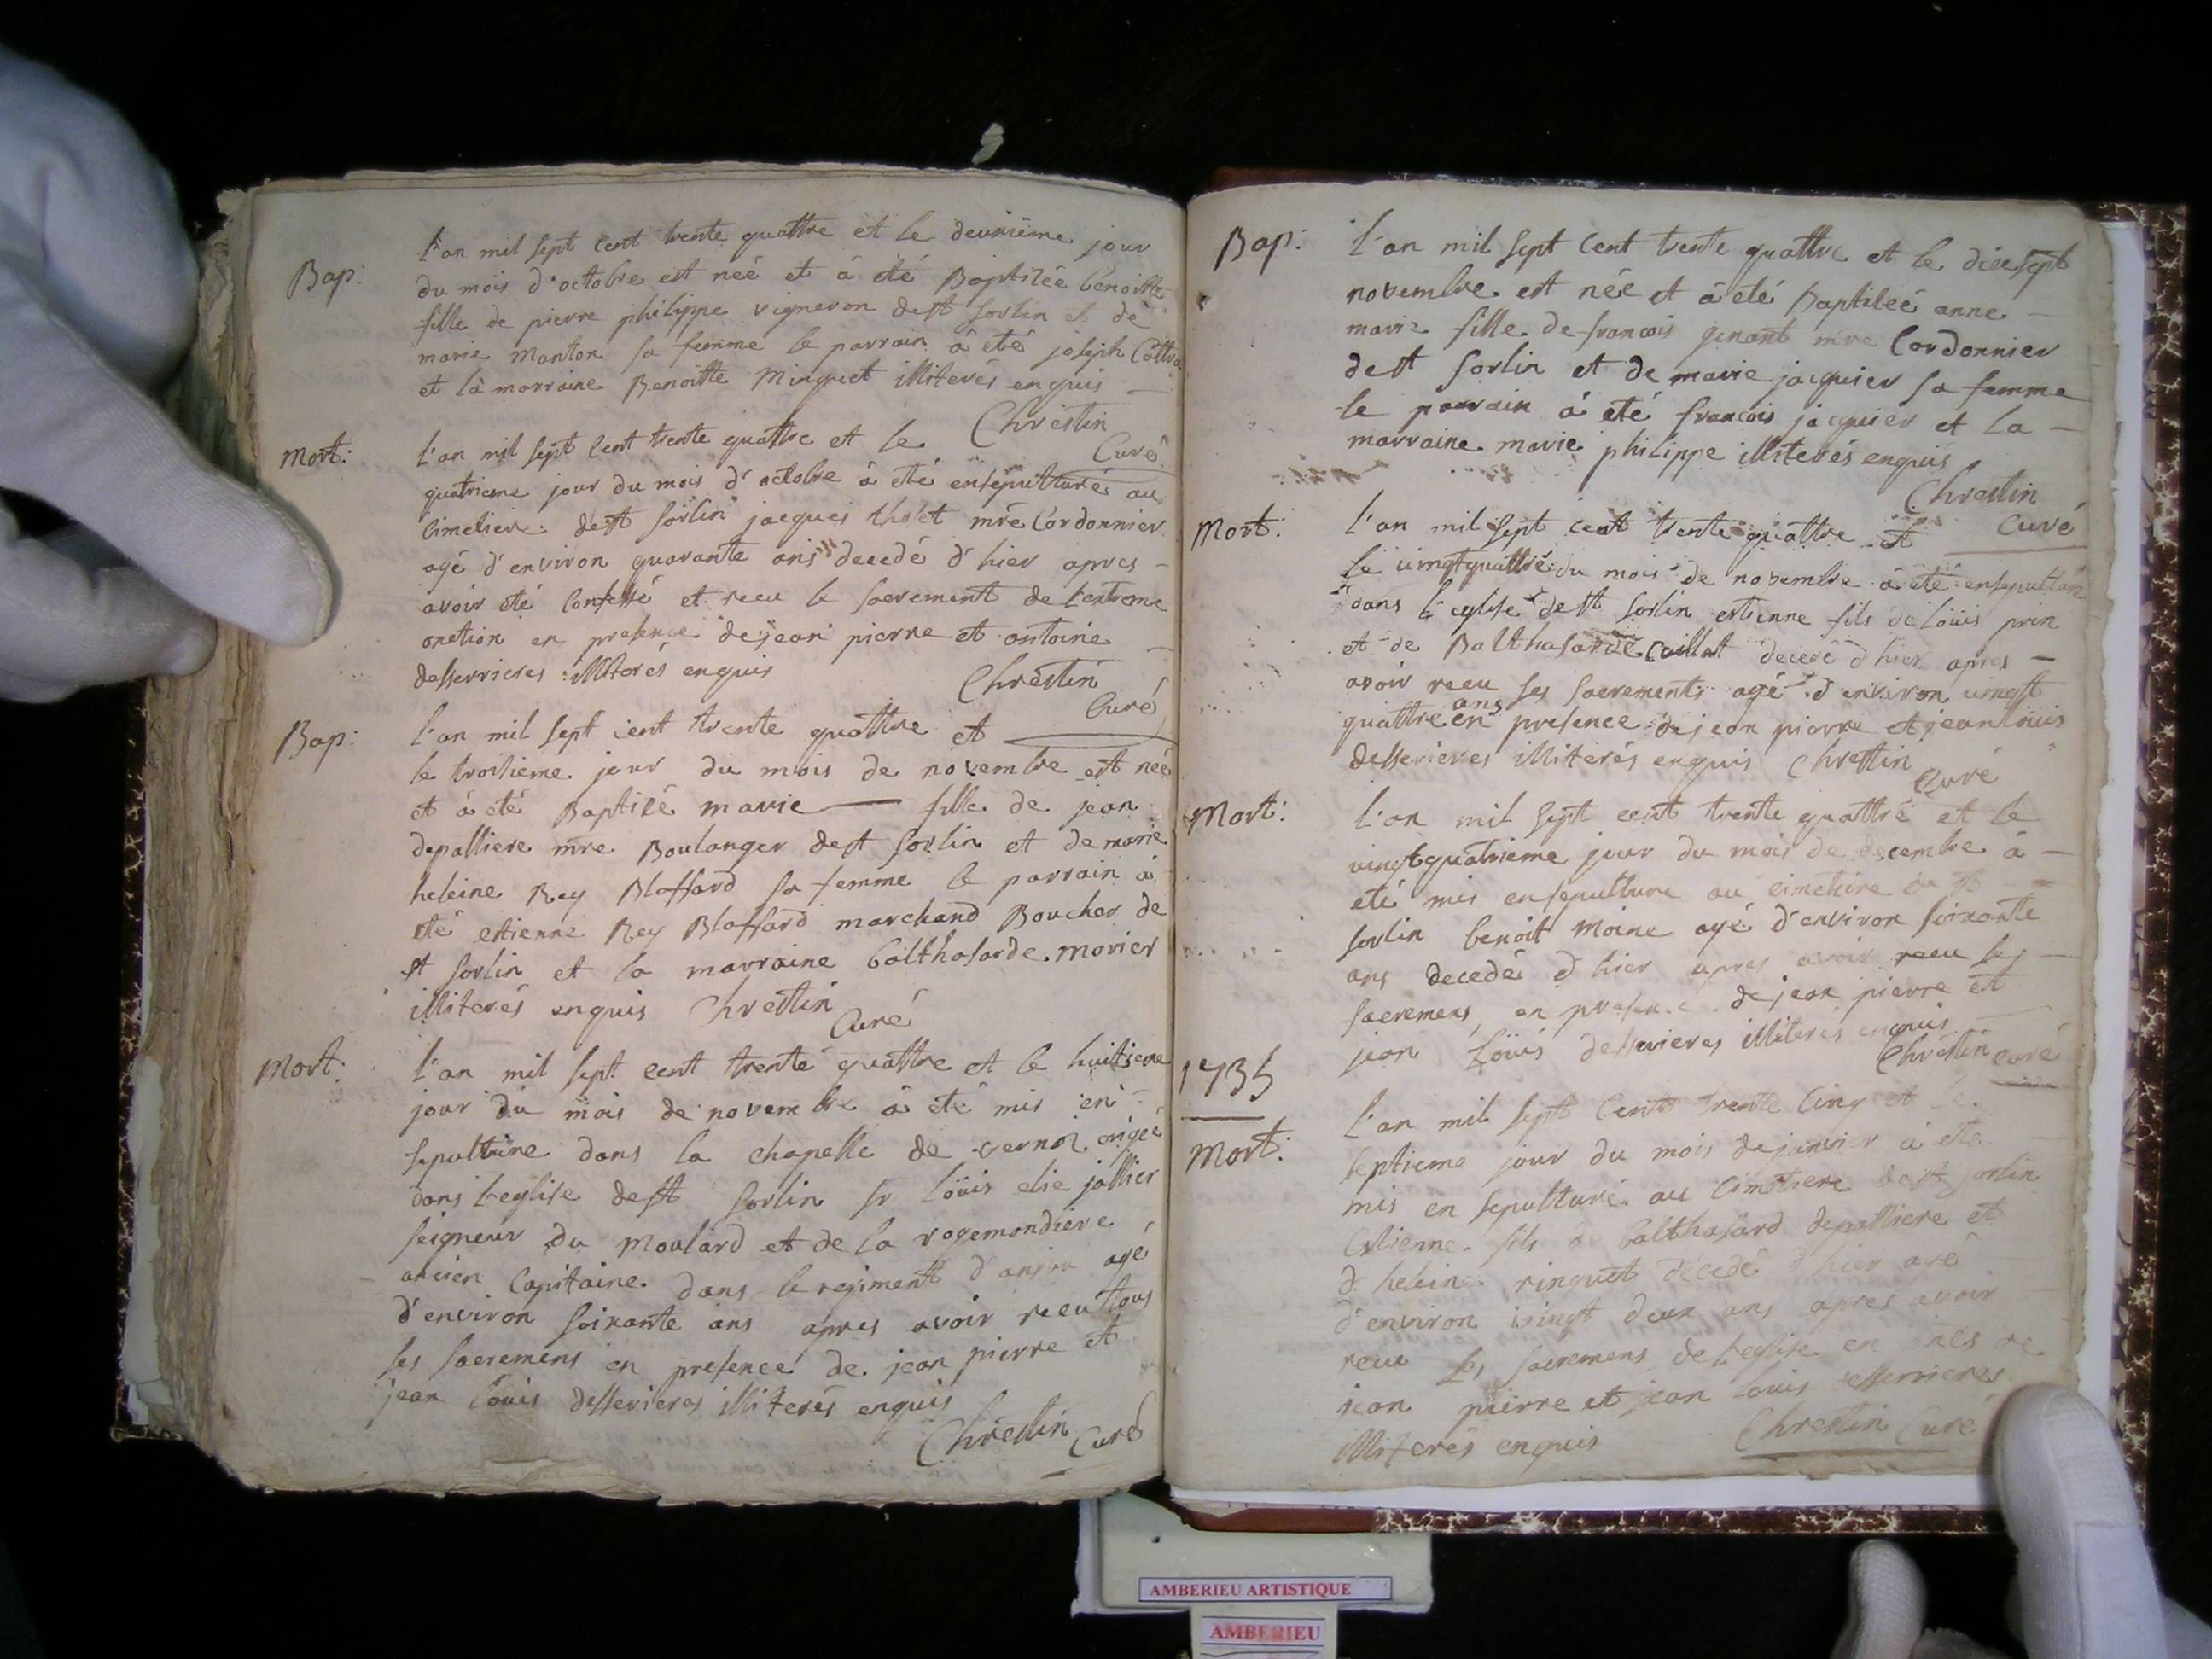 Bap:
l'an mil sept cent trente quattre et le deuxiême jour
du mois d'octobre est neé et à eté Baptiseé benoitte
fille de pierre philippe vigneron de st sorlin et de
marie manton sa femme le parrain à eté joseph
et là marraine Benoitte Minguet illiterés enquis
Chrestin
Curé
Mort:
l'an mil sept cent trente quattre et le
quatrieme jour du mois d'octobre à eté ensepulturé au
cimetiere de st sorlin jacques thoset mre Cordonnier
agé d'environ quarante ans decedé d'hier apres -
avoir eté confessé et receu le sacrement de l'extreme
onction en presence de jean pierre et antoine
desserrieres illiterés enquis
Chrestin
Curé
Bap:
l'an mil sept cent trente quattre et
le troisieme jour du mois de novembre est neé
et à eté Baptizé marie fille de jean
depalliere mre Boulanger de st sorlin et de marie
heleine Rey Blaffard sa femme le parrain à
eté etienne Rey Blaffard marchand Boucher de
st sorlin et la marraine balthasarde morier
illiterés enquis Chrestin
Curé
Mort:
l'an mil sept cent trente quattre et le huitieme
jour du mois de novembre à eté mis en
sepulture dans la chapelle de vernoz erigeé
dans l'eglise de st sorlin sr loüis elie jallier
seigneur du moulard et de la rogemondiere
ancien capitaine dans le regiment d'anjou agé
d'environ soixante ans apres avoir receu tous
ses sacremens en presence de jean pierre et
jean loüis desserieres illiterés enquis
Chrestin Curé
Bap:
l'an mil sept cent trente quattre et le dix sept
novembre est néé et à eté baptiseé anne -
marie fille de francois genant mre Cordonnier
de st sorlin et de marie jacquier sa femme
le parrain à eté francois jacquier et la -
marraine marie philippe illiterés enquis
Chrestin
Curé
Mort:
l'an mil sept cent trente quattre et
le vingtquattre du mois de novembre à eté ensepulturé
dans l'eglise de st sorlin estienne fils de loüis prin
et de Balthasarde Caillat decedé d'hier apres -
avoir receu ses sacrements agé d'environ vingt
quattre ans en presence de jean pierre et jean louis
desserieres illiterés enquis Chrestin
Curé
Mort:
l'an mil sept cent trente quattre et le
vingtquatrieme jour du mois de decembre à -
eté mis en sepulture au cimetiere de st
sorlin benoit moine agé d'environ soixante
ans decedé d'hier apres avoir receu les
sacremens, en presence de jean pierre et
jean Loüis desserieres illiterés enquis
Chrestin curé
1735
Mort:
l'an mil sept cent trente cinq et le
septieme jour du mois de janvier à eté
mis en sepulture au cimetiere de st sorlin
estienne fils de balthasard depalliere et
d'heleine ringuet decedé d'hier agé
d'environ vingt deux ans apres avoir
receu les sacremens de l'eglise en de
jean pierre et jean louis desserrieres
illiterés enquis Chrestin Curé
AMBERIEU ARTISTIQUE
AMBERIEU